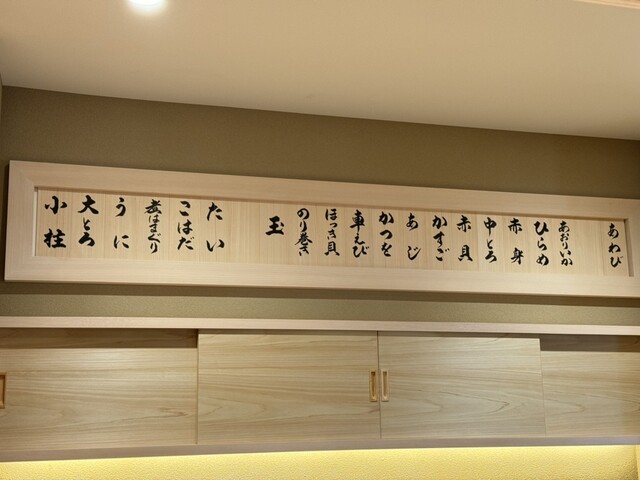 あわび
あおりいか
ひらめ
赤身
中とろ
赤貝
かすご
あじ
かつを
車えび
ほっき貝
のり巻き
玉
たい
こはだ
煮はまぐり
うに
大とろ
小柱